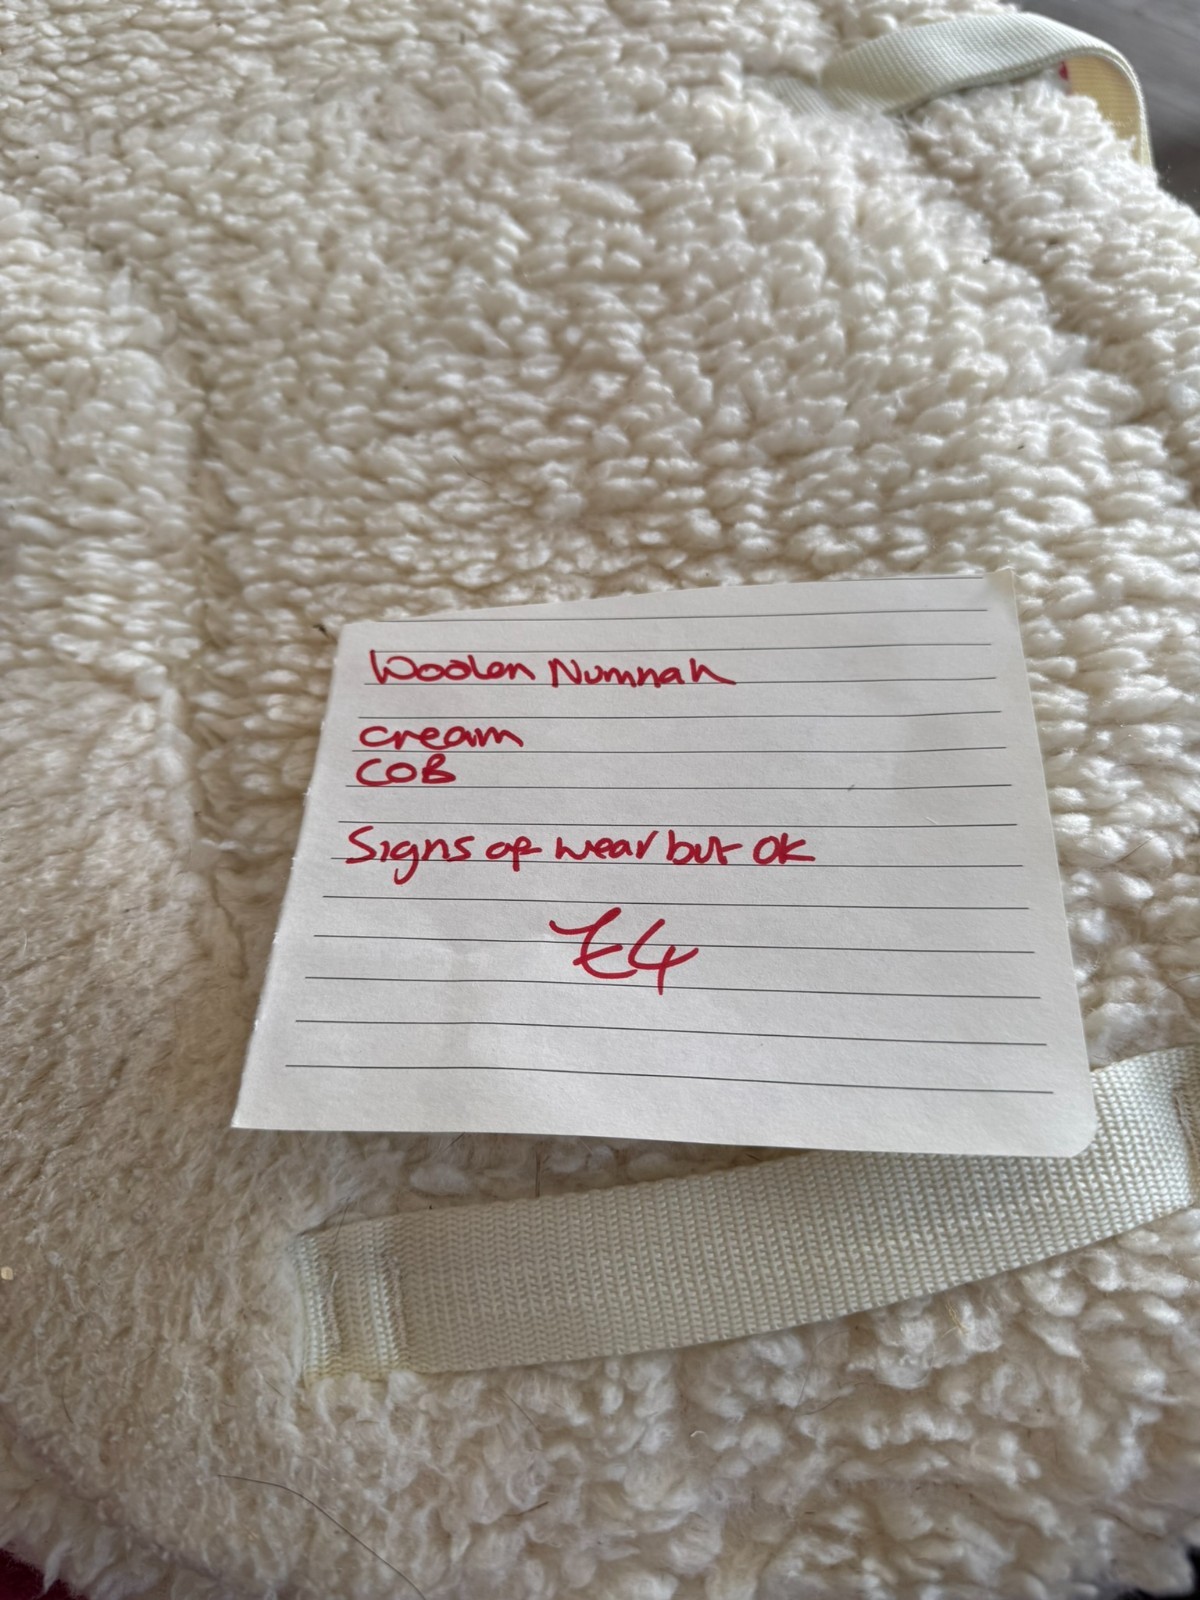 Woolen Numnah
cream
COB
Signs of wear but OK
£4